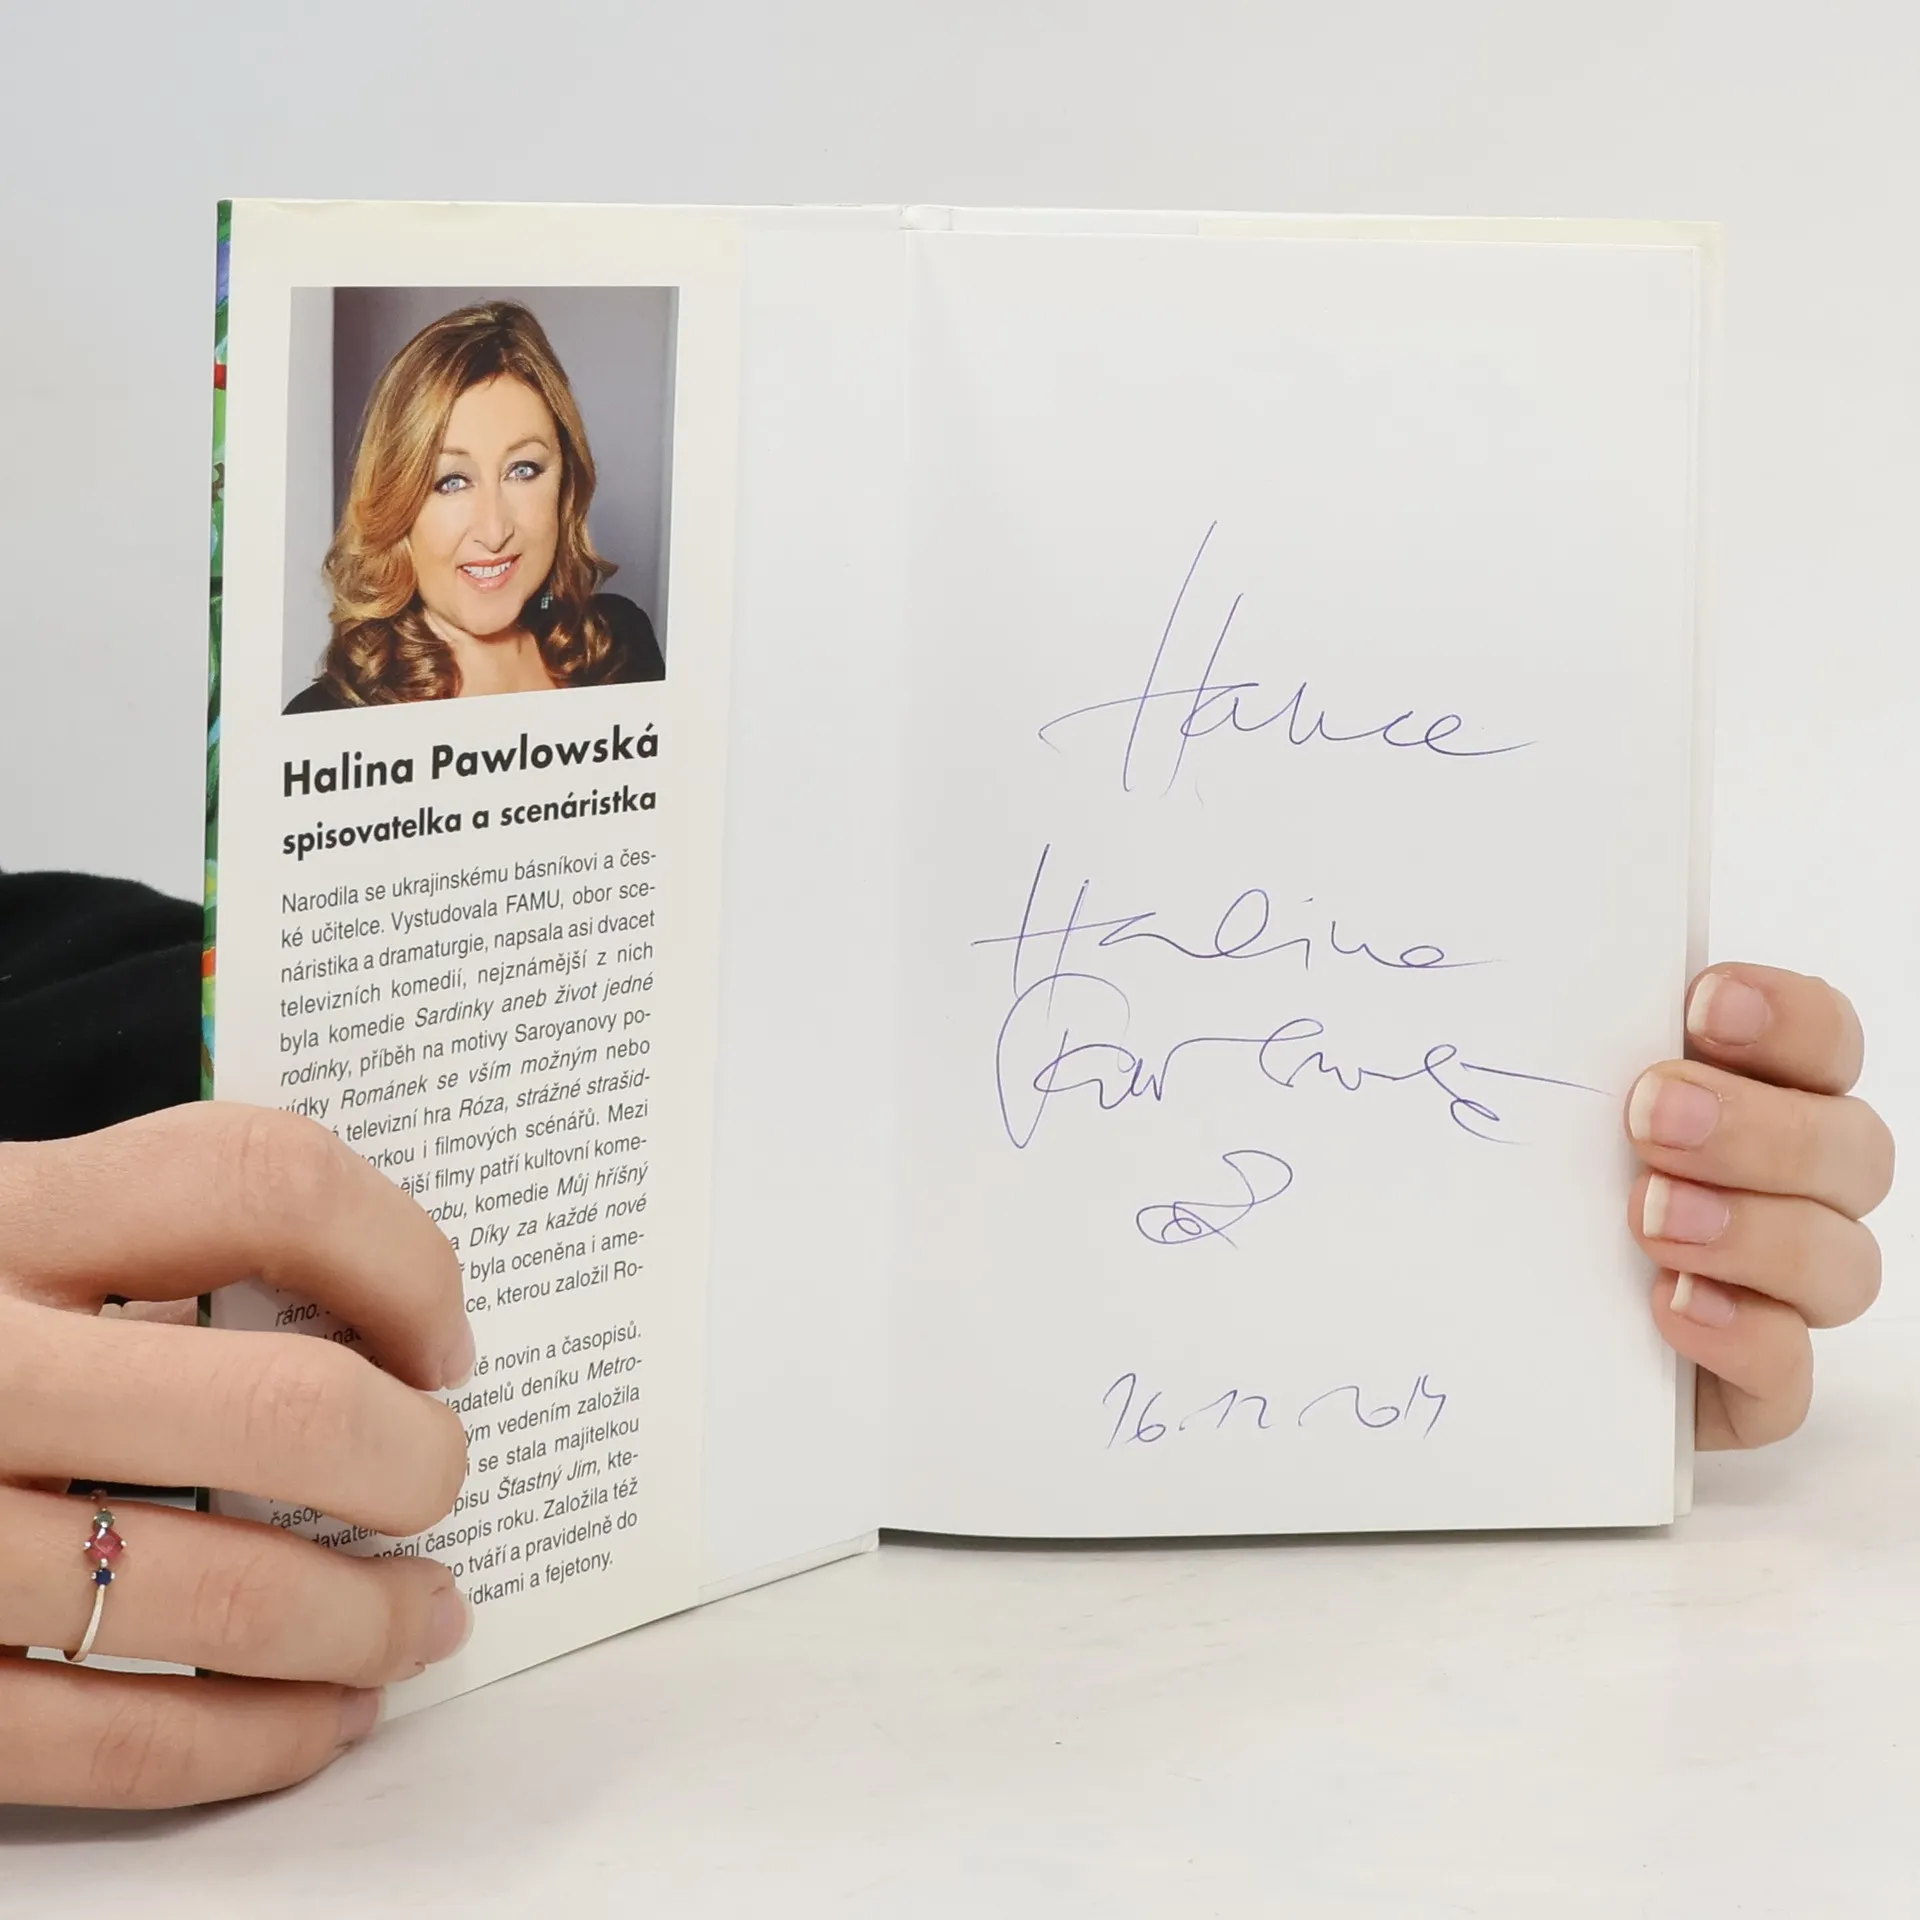 Halina Pawlowská
spisovatelka a scenáristka
Narodila se ukrajinskému básníkovi a čes-
ké učitelce. Vystudovala FAMU, obor sce-
náristika a dramaturgie, napsala asi dvacet
televizních komedií, nejznámější z nich
byla komedie Sardinky aneb život jedné
rodinky, příběh na motivy Saroyanovy po-
vídky Románek se vším možným nebo
televizní hra Róza, strážné strašid-
orkou i filmových scénářů. Mezi
ější filmy patří kultovní kome-
robu, komedie Můj hříšný
a Díky za každé nové
ráno.
byla oceněna i ame-
ce, kterou založil Ro-
tě novin a časopisů.
ladatelů deníku Metro-
ým vedením založila
i se stala majitelkou
časop
pisu Šťastný Jim, kte-
davatel
nění časopis roku. Založila též
ho tváří a pravidelně do
ídkami a fejetony.
Hance
Halina
Pawlowská
16.12.2014